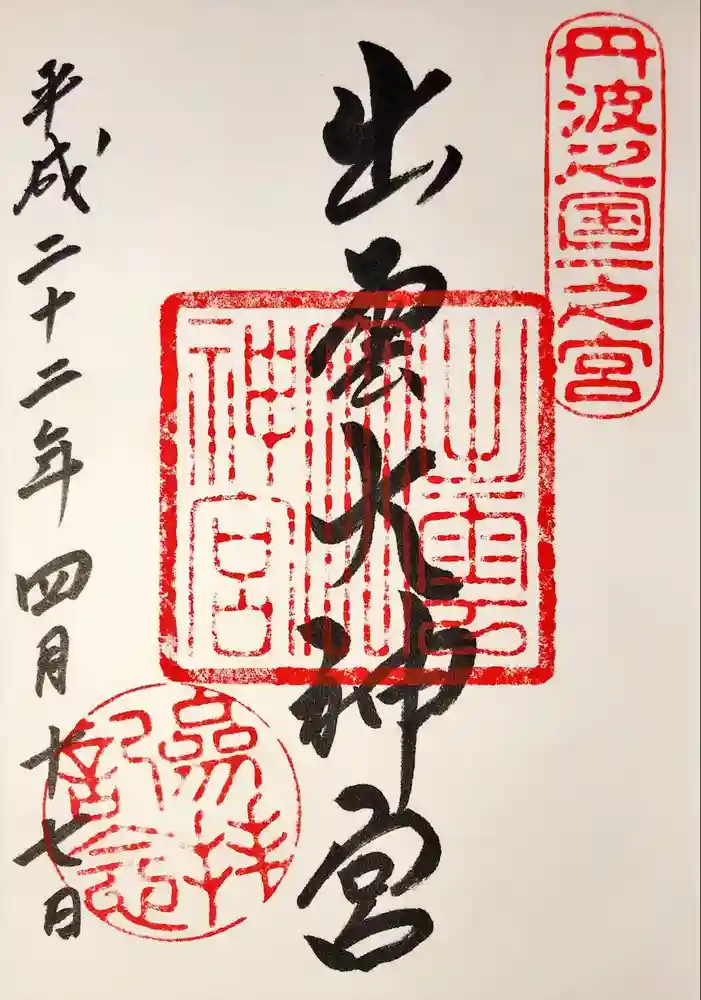 丹波之国一之宮
出雲大神宮
出雲大神宮
平成二十二年四月十七日
參拝記念